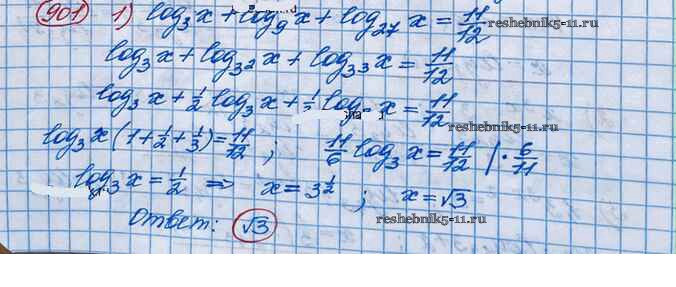 901 1) log₃ x + log₉ x + log₂₇ x = 11/12
reshebnik5-11.ru
log₃ x + log₃² x + log₃³ x = 11/12
log₃ x + 1/2 log₃ x + log x = 11/12
log₃ x (1 + 1/2 + 1/3) = 11/12 ; 11/6 log₃ x = 11/12 | · 6/11
reshebnik5-11.ru
log₃ x = 1/2 ⇒ x = 3^(1/2) ; x = √3
reshebnik5-11.ru
Ответ: √3